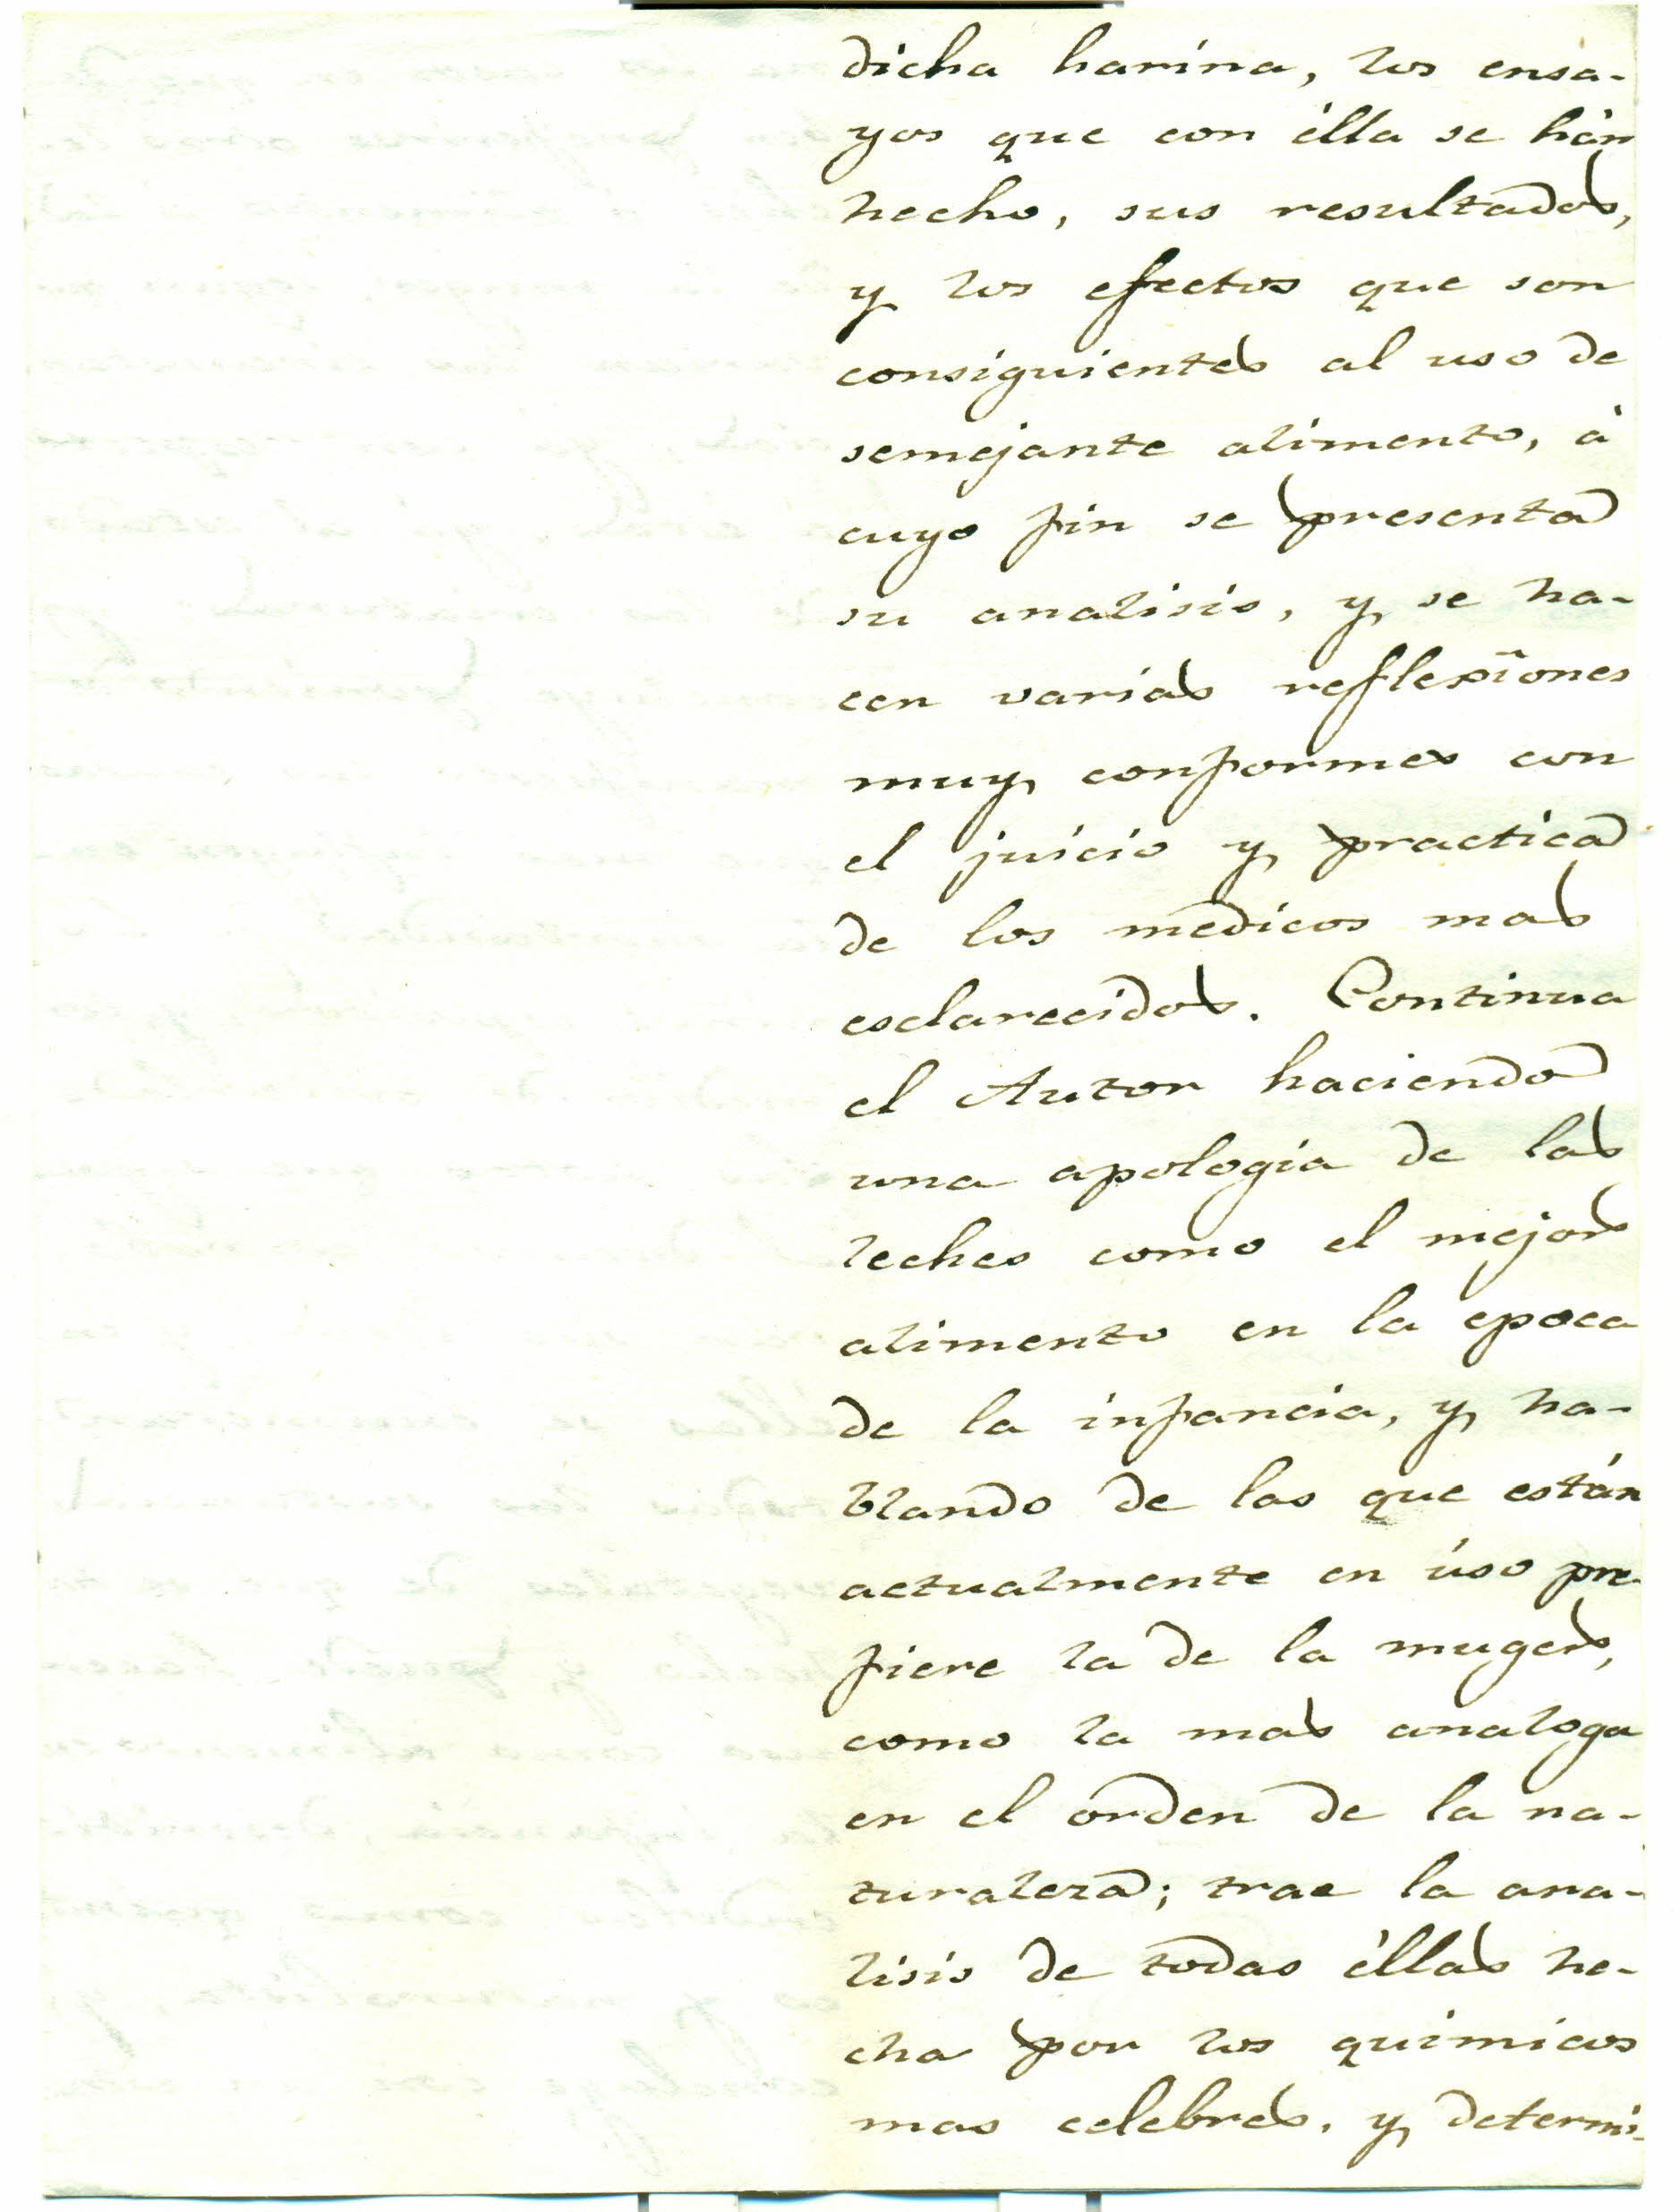 dicha harina, los ensa-
yos que con élla se hán
hecho, sus resultados,
y los efectos que son
consiguientes al uso de
semejante alimento, á
cuyo fin se presenta
su analisis, y se ha-
cen varias reflexîones
muy conformes con
el juicio y practica
de los medicos mas
esclarecidos. Continua
el Autor haciendo
una apologia de las
leches como el mejor
alimento en la epoca
de la infancia, y ha-
blando de las que están
actualmente en úso pre-
fiere la de la muger,
como la mas analoga
en el orden de la na-
turaleza; trae la ana-
lisis de todas éllas he-
cha por los quimicos
mas celebres, y determi-